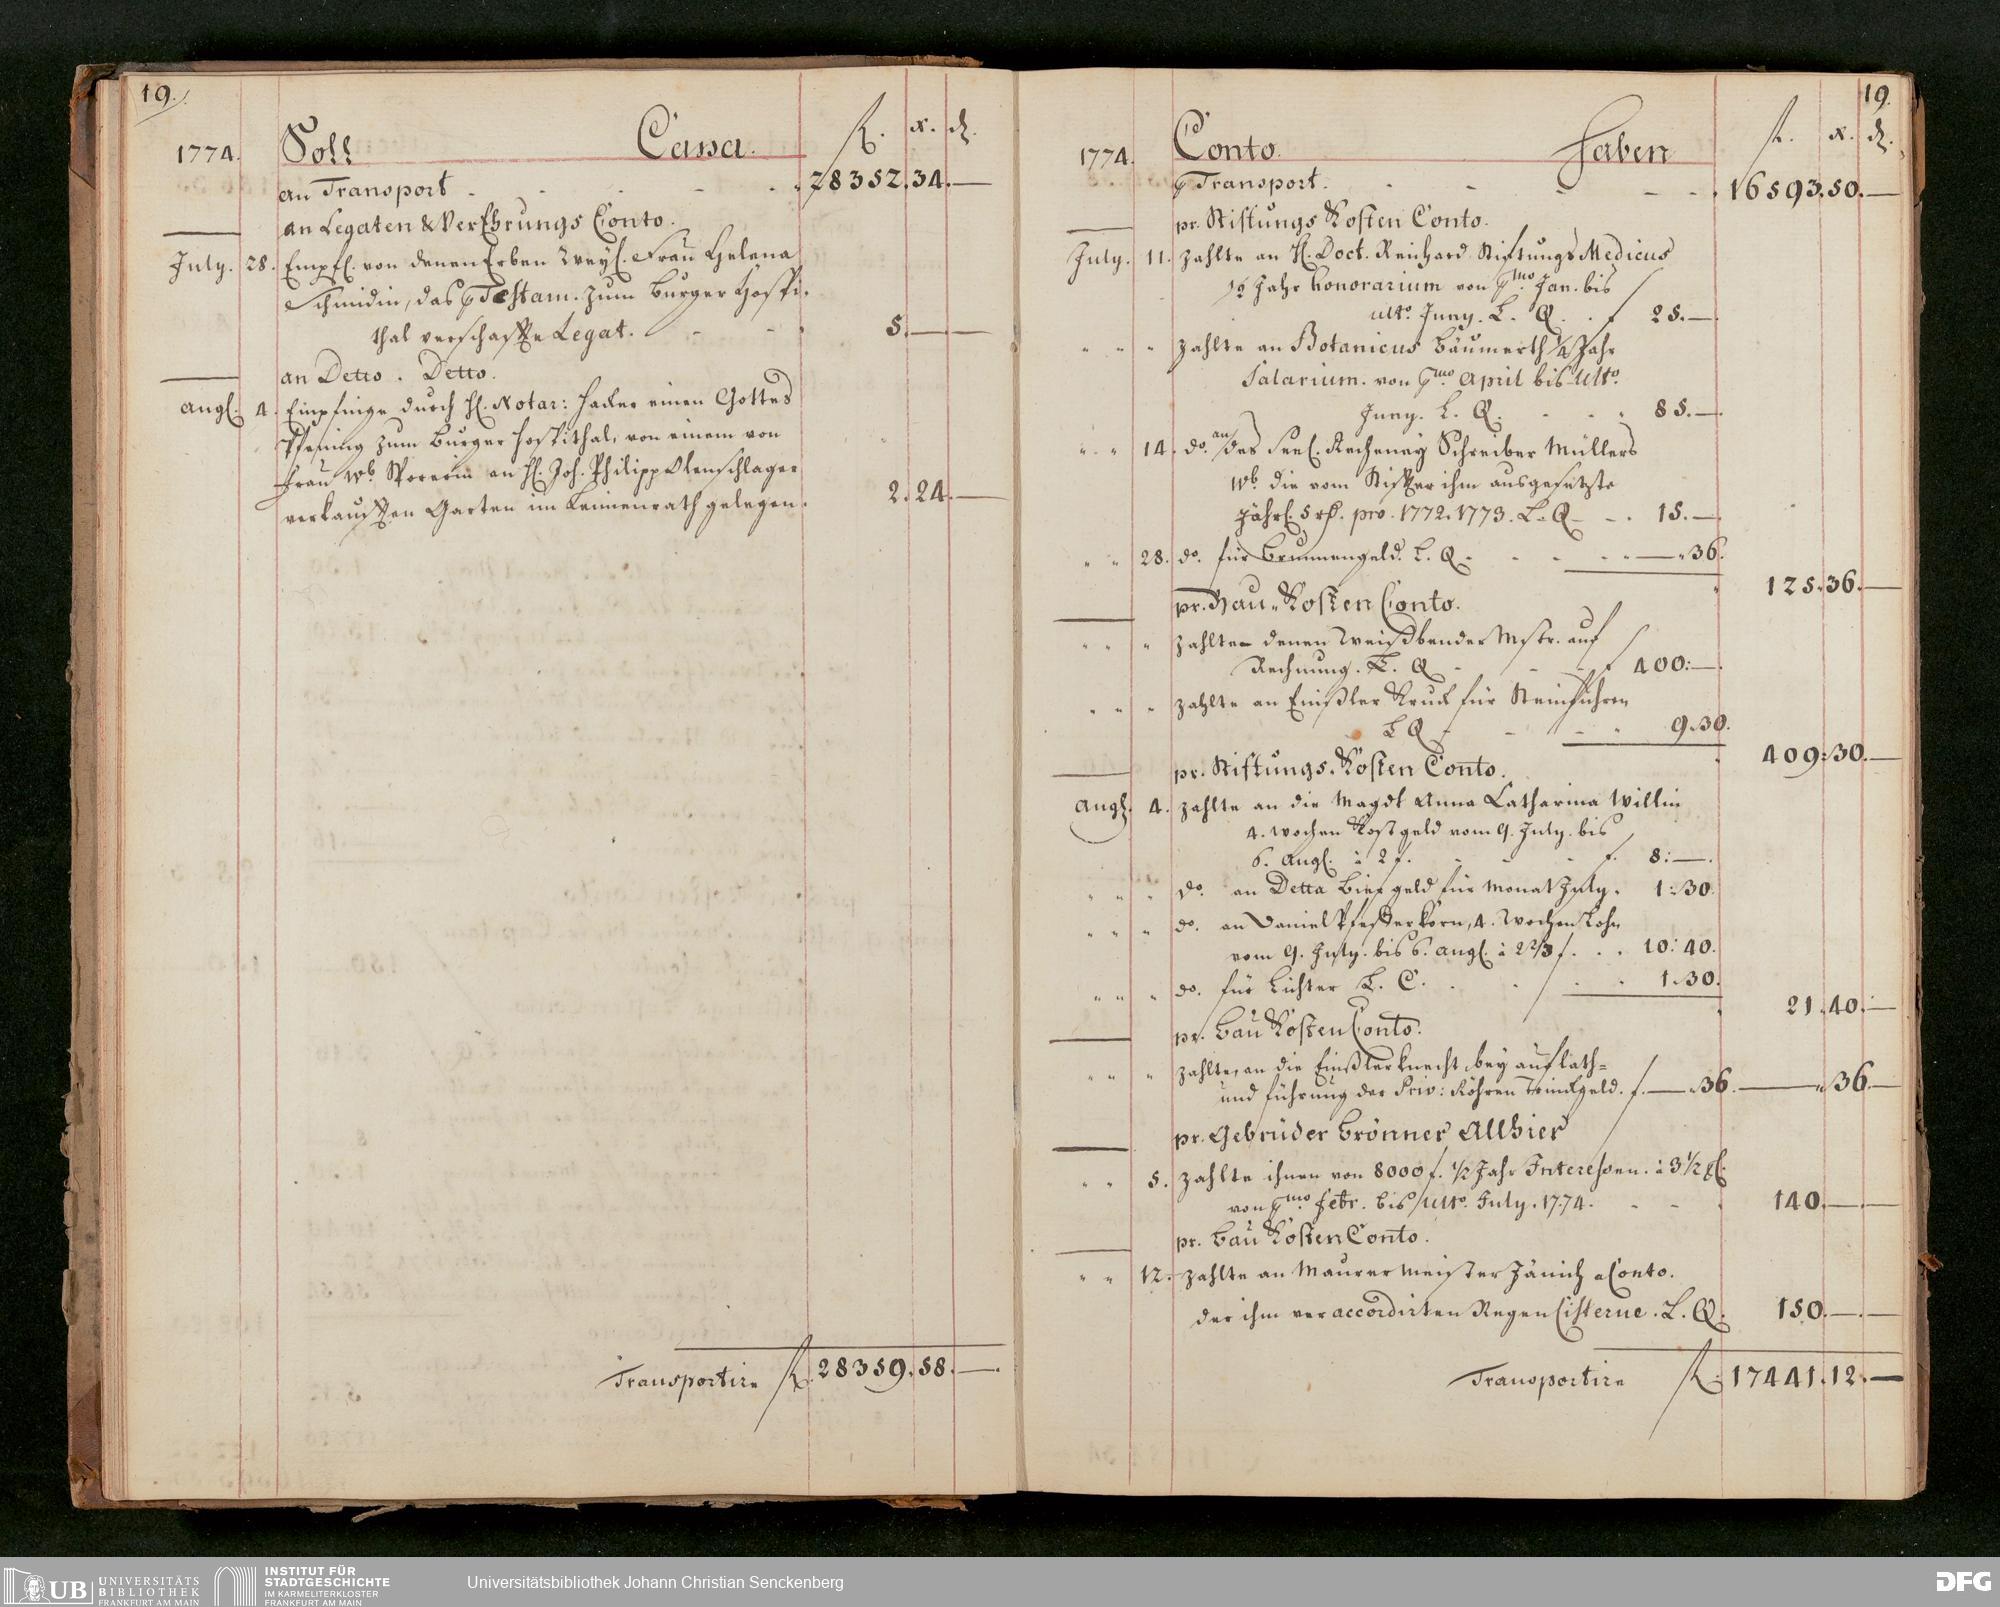 19.
1774. Soll Cassa. fl. x. d.
an Transport 28352. 34. —
an Legaten & VerEhrungs Conto.
July. 28. Empf. von denen Erben Weyl. Frau Helena
Schmidin, das p Testam. zum Burger Hospi-
thal verschaffte Legat. 5. — —
an Detto. Detto.
Aug. 4. Empfinge durch H. Notar: Hacker einen Gottes
Pfening zum Burger Hospithal, von einem von
Frau Wb. Sporerin an H. Joh. Philipp Olenschlager
verkaufften Garten im Leimenrath gelegen. 2. 24. —
Transportire fl. 28359. 58. —
19.
1774. Conto. Haben fl. x. d.
p Transport. 16593. 50. —
pr. Stiftungs Kosten Conto.
July. 11. zahlte an H. Doct. Reichard Stiftungs Medicus
Jahr honorarium von pmo. Jan. bis
ulto. Juny. L. Q. f 25. —
" " " zahlte an Botanicus Bäumerth 1/4 Jahr
Salarium. von pmo April bis Ulto.
Juny. L. Q. 85. —
" " 14. do. an des seel. Recheney Schreiber Müllers
Wb. die vom Stiffter ihm ausgesetzte
Jährl. 5 rh. pro. 1772. 1773. L. Q 15. —
" " 28. do. für Brunnengeld. L. Q — " 36.
125. 36. —
pr. Bau-Kosten Conto.
" " " zahlte denen Weißbender Mstr. auf
Rechnung. L. Q f 400: —
" " " zahlte an Einßler Kruck für Steinfuhren
L Q 9. 30.
409: 30. —
pr. Stiftungs. Kosten Conto.
Aug. 4. zahlte an die Magdt Anna Catharina Willin
4. Wochen Kostgeld vom 9. July. bis
6. Aug. à 2 f. f. 8: —.
" " " do. an Detta Bier geld für Monat July. 1: 30.
" " " do. an Daniel Pfefferkorn, 4. Wochen Lohn
vom 9. July. bis 6. Aug. à 2 2/3 f. 10: 40.
" " " do. für Lichter L. C. 1. 30.
21. 40. —
pr. Bau Kosten Conto.
" " " zahlte, an die Einßlerknecht bey auflath=
und führung der Priv: Röhren Trinckgeld. f. — " 36. — " 36. —
pr. Gebrüder Brönner Allhier
" " 5. zahlte ihnen von 8000 f. 1/2 Jahr Interessen. à 3 1/2 pC.
von pmo. Febr. bis Ulto. July. 1774. 140. — —
pr. Bau Kosten Conto.
" " 12. zahlte an Maurer Meister Jänich a Conto.
der ihm veraccordirten Regen Cisterne. L. Q. 150. — —
Transportire fl. 17441. 12. —
UB UNIVERSITÄTS
BIBLIOTHEK
FRANKFURT AM MAIN
INSTITUT FÜR
STADTGESCHICHTE
IM KARMELITERKLOSTER
FRANKFURT AM MAIN
Universitätsbibliothek Johann Christian Senckenberg
DFG